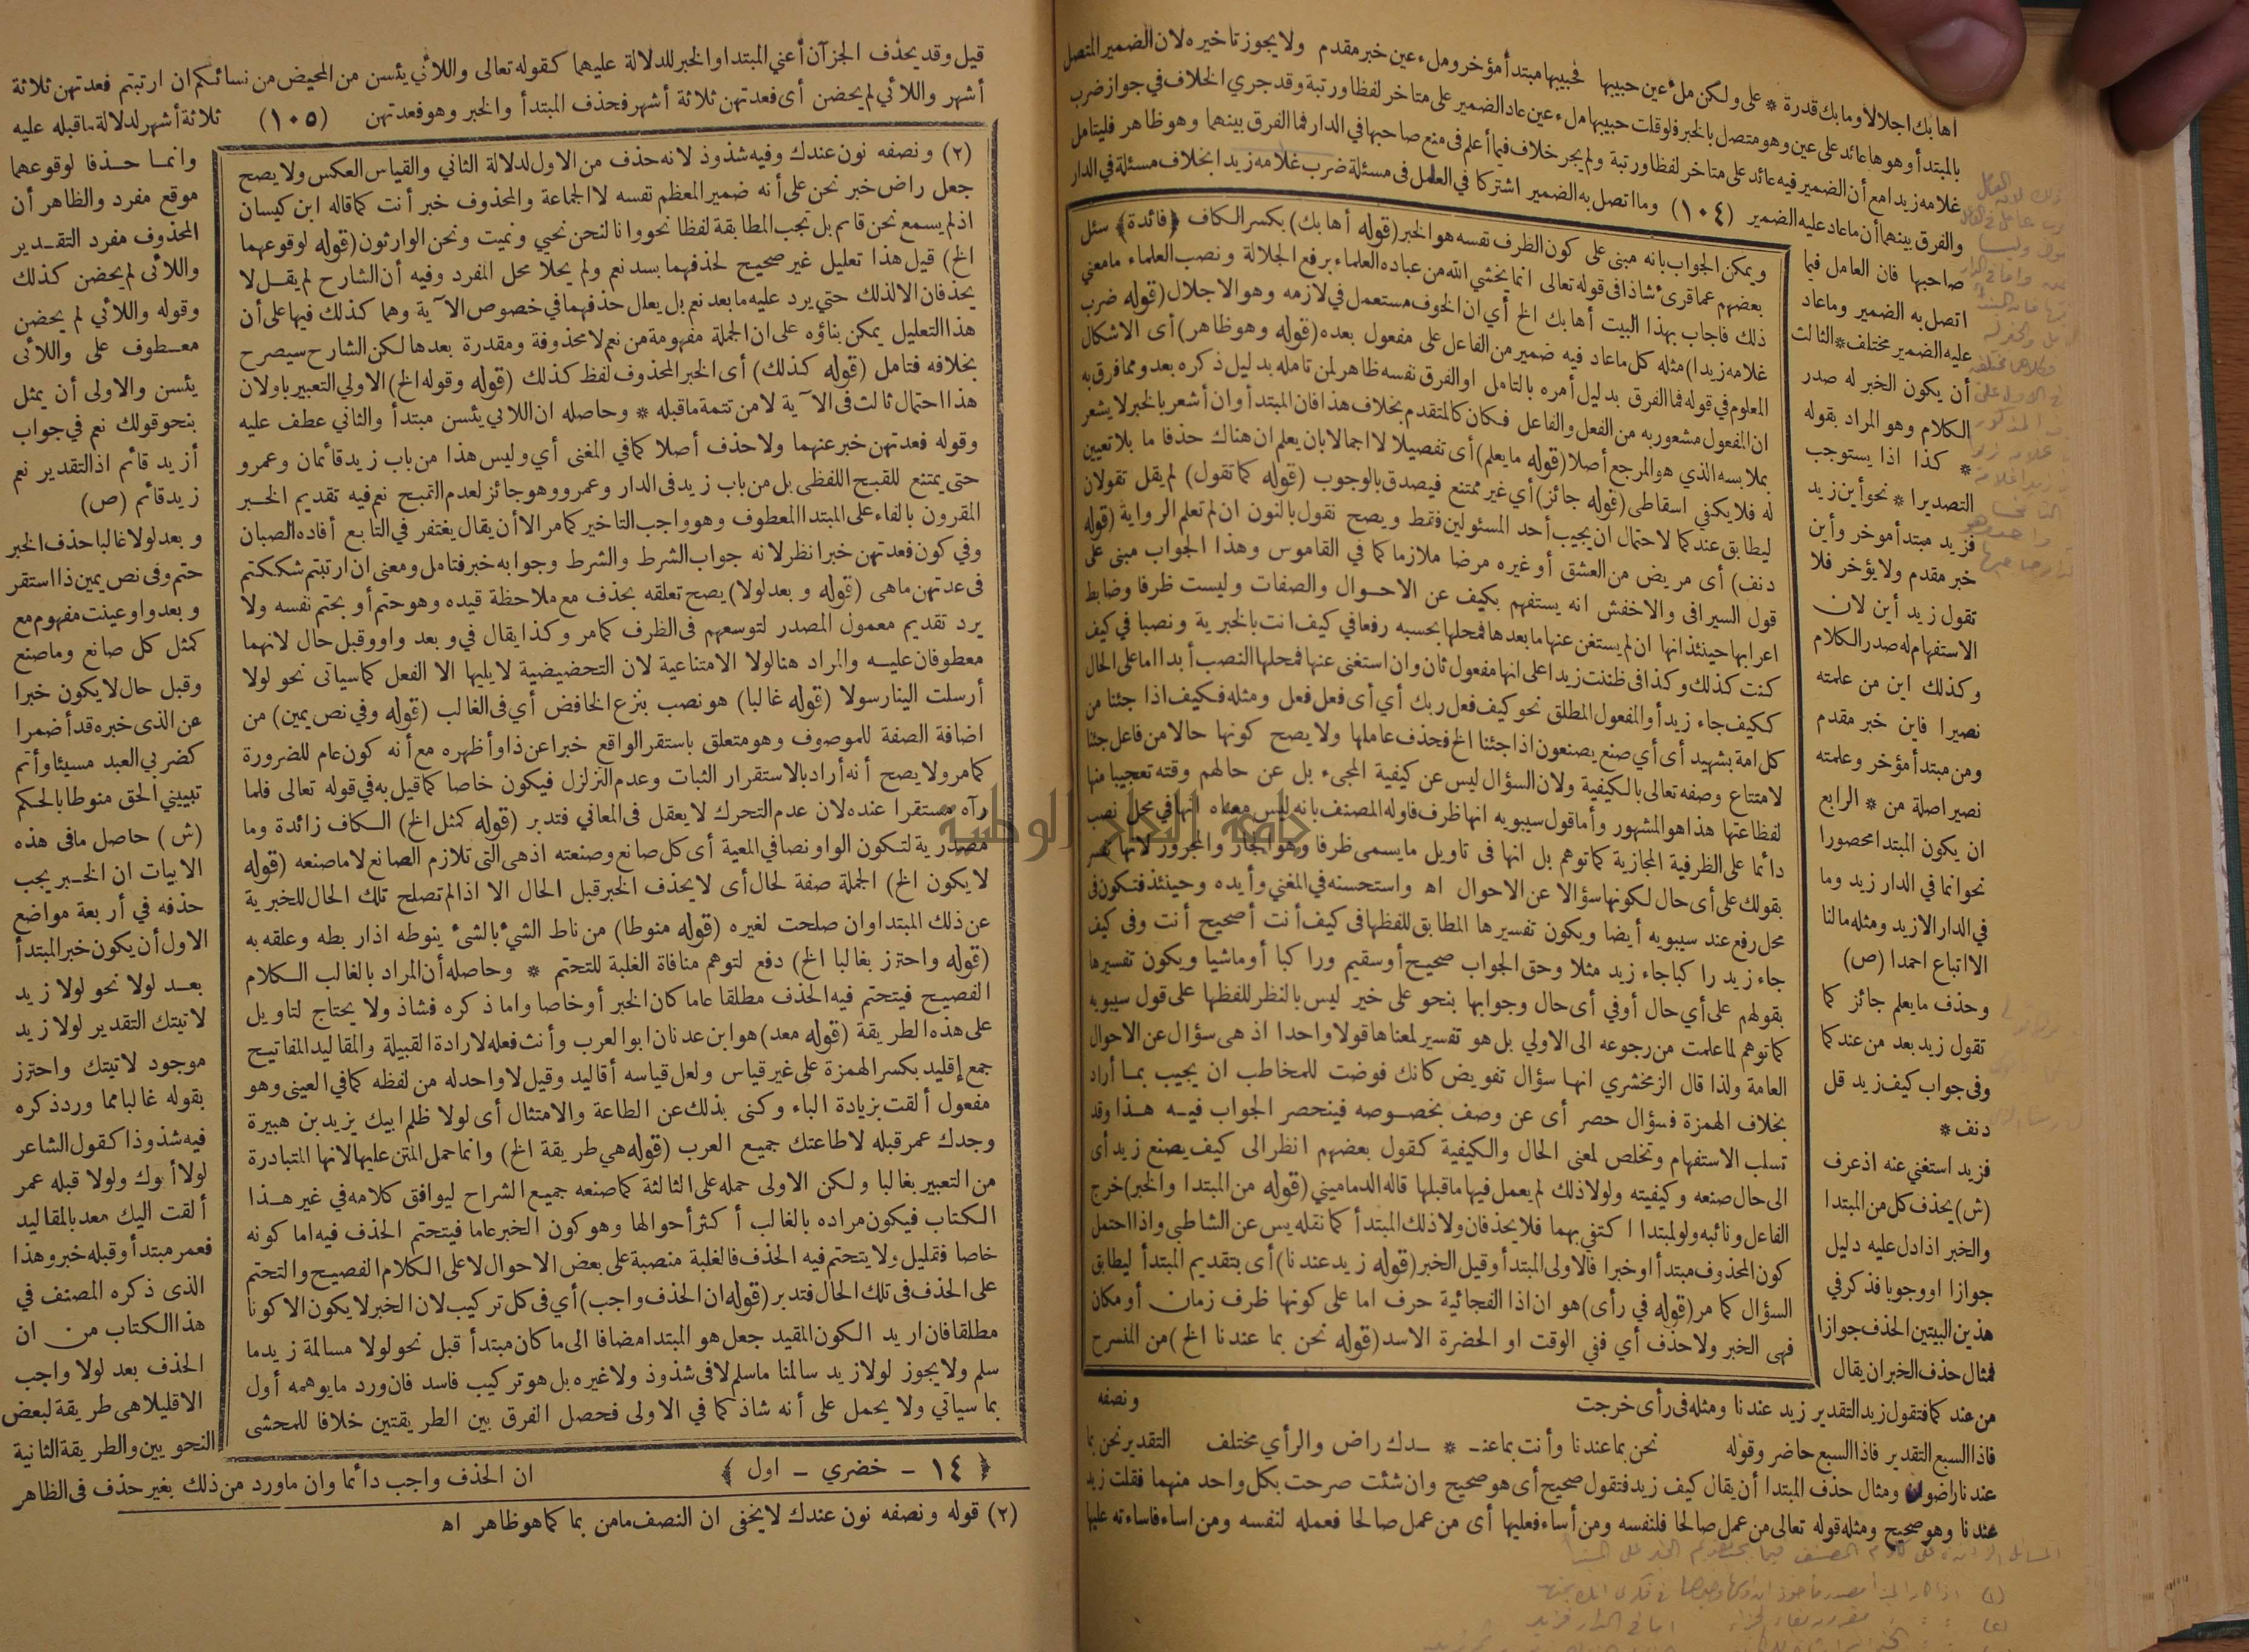 اهابك اجلالا ومابك قدرة * على ولكن ملء عين حبيبها فحبيبها مبتدأ مؤخر وملء عين خبر مقدم ولا يجوز تاخيره لان الضمير المتصل
بالمبتدأ وهو ها عائد على عين وهو متصل بالخبر فلو قلت حبيبها ملء عين عاد الضمير على متاخر لفظا ورتبة وقد جري الخلاف في جواز ضرب
غلامه زيدا مع أن الضمير فيه عائد على متاخر لفظا ورتبة ولم يجر خلاف فيما أعلم فى منع صاحبها في الدار فما الفرق بينهما وهو ظاهر فليتامل
والفرق بينهما أن ما عاد عليه الضمير (١٠٤) وما اتصل به الضمير اشتركا في العامل فى مسئلة ضرب غلامه زيدا بخلاف مسئلة في الدار
صاحبها فان العامل فيما
اتصل به الضمير وما عاد
عليه الضمير مختلف * الثالث
أن يكون الخبر له صدر
الكلام وهو المراد بقوله
* كذا اذا يستوجب
التصديرا * نحو أين زيد
فزيد مبتدأ موخر وأين
خبر مقدم ولا يؤخر فلا
تقول زيد أين لان
الاستفهام له صدر الكلام
وكذلك اين من علمته
نصيرا فاين خبر مقدم
ومن مبتدأ مؤخر وعلمته
نصير اصلة من * الرابع
ان يكون المبتدا محصورا
نحو انما في الدار زيد وما
في الدار الا زيد ومثله ما لنا
الا اتباع احمدا (ص)
وحذف ما يعلم جائز كما
تقول زيد بعد من عند كما
وفى جواب كيف زيد قل
دنف *
فزيد استغني عنه اذ عرف
(ش) يحذف كل من المبتدا
والخبر اذا دل عليه دليل
جوازا او وجوبا فذكر في
هذين البيتين الحذف جوازا
فمثال حذف الخبر ان يقال
ويمكن الجواب بانه مبنى على كون الظرف نفسه هو الخبر (قوله أهابك) بكسر الكاف ﴿فائدة﴾ سئل
بعضهم عما قرئ شاذا فى قوله تعالى انما يخشي الله من عباده العلماء برفع الجلالة ونصب العلماء ما معني
ذلك فاجاب بهذا البيت أهابك الخ أي ان الخوف مستعمل في لازمه وهو الاجلال (قوله ضرب
غلامه زيدا) مثله كل ما عاد فيه ضمير من الفاعل على مفعول بعده (قوله وهو ظاهر) أى الاشكال
المعلوم في قوله فما الفرق بدليل أمره بالتامل او الفرق نفسه ظاهر لمن تامله بدليل ذكره بعد ومما فرق به
ان المفعول مشعور به من الفعل والفاعل فكان كالمتقدم بخلاف هذا فان المبتدأ وان أشعر بالخبر لا يشعر
بملابسه الذي هو المرجع أصلا (قوله ما يعلم) أى تفصيلا لا اجمالا بان يعلم ان هناك حذفا ما بلا تعيين
له فلا يكفي اسقاطى (قوله جائز) أي غير ممتنع فيصدق بالوجوب (قوله كما تقول) لم يقل تقولان
ليطابق عند كما لاحتمال ان يجيب أحد المسئولين فقط ويصح نقول بالنون ان لم تعلم الرواية (قوله
دنف) أى مريض من العشق أو غيره مرضا ملازما كما في القاموس وهذا الجواب مبنى على
قول السيرافى والاخفش انه يستفهم بكيف عن الاحوال والصفات وليست ظرفا وضابط
اعرابها حينئذ انها ان لم يستغن عنها ما بعدها فمحلها بحسبه رفعا في كيف انت بالخبرية ونصبا في كيف
كنت كذلك وكذا فى ظننت زيدا على انها مفعول ثان وان استغنى عنها فمحلها النصب أبدا اما على الحال
ككيف جاء زيد أو المفعول المطلق نحو كيف فعل ربك أي أى فعل فعل ومثله فكيف اذا جئنا من
كل امة بشهيد أى أي صنع يصنعون اذا جئنا الخ فحذف عاملها ولا يصح كونها حالا من فاعل جئنا
لامتناع وصفه تعالى بالكيفية ولان السؤال ليس عن كيفية المجىء بل عن حالهم وقته تعجيبا منها
لفظاعتها هذا هو المشهور وأما قول سيبويه انها ظرف فاوله المصنف بانه ليس معناه انها في محل نصب
دائما على الظرفية المجازية كما توهم بل انها فى تاويل ما يسمى ظرفا وهو الجار والمجرور لانها تفسر
بقولك على أى حال لكونها سؤالا عن الاحوال اه واستحسنه في المغني وأيده وحينئذ فتكون فى
محل رفع عند سيبويه أيضا ويكون تفسيرها المطابق للفظها فى كيف أنت أصحيح أنت وفى كيف
جاء زيد راكبا جاء زيد مثلا وحق الجواب صحيح أو سقيم وراكبا أو ماشيا ويكون تفسيرها
بقولهم على أي حال أوفي أى حال وجوابها بنحو على خير ليس بالنظر للفظها على قول سيبويه
كما توهم لما علمت من رجوعه الى الاولي بل هو تفسير لمعناها قولا واحدا اذ هى سؤال عن الاحوال
العامة ولذا قال الزمخشري انها سؤال تفويض كانك فوضت للمخاطب ان يجيب بما أراد
بخلاف الهمزة فسؤال حصر أى عن وصف بخصوصه فينحصر الجواب فيه هذا وقد
تسلب الاستفهام وتخلص لمعنى الحال والكيفية كقول بعضهم انظر الى كيف يصنع زيد أى
الى حال صنعه وكيفيته ولولا ذلك لم يعمل فيها ما قبلها قاله الدماميني (قوله من المبتدا والخبر) خرج
الفاعل ونائبه ولو لمبتدا اكتفي بهما فلا يحذفان ولا ذلك المبتدأ كما نقله يس عن الشاطبي واذا احتمل
كون المحذوف مبتدأ او خبرا فالاولى المبتدأ وقيل الخبر (قوله زيد عندنا) أى بتقديم المبتدأ ليطابق
السؤال كما مر (قوله في رأى) هو ان اذا الفجائية حرف اما على كونها ظرف زمان أو مكان
فهى الخبر ولا حذف أي ففي الوقت او الحضرة الاسد (قوله نحن بما عندنا الخ) من المنسرح
من عند كما فتقول زيد التقدير زيد عندنا ومثله فى رأى خرجت ونصفه
فاذا السبع التقدير فاذا السبع حاضر وقوله نحن بما عندنا وأنت بما عنـ * ـدك راض والرأي مختلف التقدير نحن بما
عندنا راضون ومثال حذف المبتدا أن يقال كيف زيد فتقول صحيح أى هو صحيح وان شئت صرحت بكل واحد منهما فقلت زيد
عندنا وهو صحيح ومثله قوله تعالى من عمل صالحا فلنفسه ومن أساء فعليها أى من عمل صالحا فعمله لنفسه ومن اساء فاساءته عليها
قيل وقد يحذف الجزآن أعني المبتدا والخبر للدلالة عليهما كقوله تعالى واللائي يئسن من المحيض من نسائكم ان ارتبتم فعدتهن ثلاثة
أشهر واللائي لم يحضن أى فعدتهن ثلاثة أشهر فحذف المبتدأ والخبر وهو فعدتهن (١٠٥) ثلاثة أشهر لدلالة ما قبله عليه
وانما حذفا لوقوعهما
موقع مفرد والظاهر أن
المحذوف مفرد التقدير
واللائى لم يحضن كذلك
وقوله واللائي لم يحضن
معطوف على واللائى
يئسن والاولى أن يمثل
بنحو قولك نعم في جواب
أزيد قائم اذ التقدير نعم
زيد قائم (ص)
وبعد لولا غالبا حذف الخبر
حتم وفى نص يمين ذا استقر
وبعد واو عينت مفهوم مع
كمثل كل صانع وما صنع
وقبل حال لا يكون خبرا
عن الذى خبره قد أضمرا
كضربي العبد مسيئا وأتم
تبييني الحق منوطا بالحكم
(ش) حاصل ما فى هذه
الابيات ان الخبر يجب
حذفه في أربعة مواضع
الاول أن يكون خبر المبتدأ
بعد لولا نحو لولا زيد
لاتيتك التقدير لولا زيد
موجود لاتيتك واحترز
بقوله غالبا مما ورد ذكره
فيه شذوذا كقول الشاعر
لولا أبوك ولولا قبله عمر
ألقت اليك معد بالمقاليد
فعمر مبتدأ وقبله خبر وهذا
الذى ذكره المصنف في
هذا الكتاب من ان
الحذف بعد لولا واجب
الا قليلا هى طريقة لبعض
النحويين والطريقة الثانية
(٢) ونصفه نون عندك وفيه شذوذ لانه حذف من الاول لدلالة الثاني والقياس العكس ولا يصح
جعل راض خبر نحن على أنه ضمير المعظم نفسه لا الجماعة والمحذوف خبر أنت كما قاله ابن كيسان
اذ لم يسمع نحن قاسم بل تجب المطابقة لفظا نحو وانا لنحن نحيي ونميت ونحن الوارثون (قوله لوقوعهما
الخ) قيل هذا تعليل غير صحيح لحذفهما بسد نعم ولم يحلا محل المفرد وفيه أن الشارح لم يقل لا
يحذفان الا لذلك حتي يرد عليه ما بعد نعم بل يعلل حذفهما في خصوص الآية وهما كذلك فيها على أن
هذا التعليل يمكن بناؤه على ان الجملة مفهومة من نعم لا محذوفة ومقدرة بعدها لكن الشارح سيصرح
بخلافه فتامل (قوله كذلك) أى الخبر المحذوف لفظ كذلك (قوله وقوله الخ) الاولي التعبير باو لان
هذا احتمال ثالث فى الآية لا من تتمة ما قبله * وحاصله ان اللائي يئسن مبتدأ والثاني عطف عليه
وقوله فعدتهن خبر عنهما ولا حذف أصلا كما في المغنى أي وليس هذا من باب زيد قائمان وعمرو
حتى يمتنع للقبح اللفظى بل من باب زيد فى الدار وعمرو وهو جائز لعدم القبح نعم فيه تقديم الخبر
المقرون بالفاء على المبتدا المعطوف وهو واجب التاخير كما مر الا أن يقال يغتفر في التابع أفاده الصبان
وفي كون فعدتهن خبرا نظر لانه جواب الشرط والشرط وجوابه خبر فتامل ومعنى ان ارتبتم شككتم
فى عدتهن ما هى (قوله وبعد لولا) يصح تعلقه بحذف مع ملاحظة قيده وهو حتم أو بحتم نفسه ولا
يرد تقديم معمول المصدر لتوسعهم فى الظرف كما مر وكذا يقال في وبعد واو وقبل حال لانهما
معطوفان عليه والمراد هنا لولا الامتناعية لان التحضيضية لا يليها الا الفعل كما سياتى نحو لولا
أرسلت الينا رسولا (قوله غالبا) هو نصب بنزع الخافض أي فى الغالب (قوله وفي نص يمين) من
اضافة الصفة للموصوف وهو متعلق باستقر الواقع خبرا عن ذا وأظهره مع أنه كون عام للضرورة
كما مر ولا يصح أنه أراد بالاستقرار الثبات وعدم التزلزل فيكون خاصا كما قيل به في قوله تعالى فلما
رآه مستقرا عنده لان عدم التحرك لا يعقل فى المعاني فتدبر (قوله كمثل الخ) الكاف زائدة وما
مصدرية لتكون الواو نصا في المعية أى كل صانع وصنعته اذ هى التى تلازم الصانع لا ما صنعه (قوله
لا يكون الخ) الجملة صفة لحال أى لا يحذف الخبر قبل الحال الا اذا لم تصلح تلك الحال للخبرية
عن ذلك المبتدا وان صلحت لغيره (قوله منوطا) من ناط الشئ بالشئ ينوطه اذا ربطه وعلقه به
(قوله واحترز بغالبا الخ) دفع لتوهم منافاة الغلبة للتحتم * وحاصله أن المراد بالغالب الكلام
الفصيح فيتحتم فيه الحذف مطلقا عاما كان الخبر أو خاصا واما ذكره فشاذ ولا يحتاج لتاويل
على هذه الطريقة (قوله معد) هو ابن عدنان ابو العرب وأنث فعله لارادة القبيلة والمقاليد المفاتيح
جمع إقليد بكسر الهمزة على غير قياس ولعل قياسه أقاليد وقيل لا واحد له من لفظه كما في العينى وهو
مفعول ألقت بزيادة الباء وكنى بذلك عن الطاعة والامتثال أى لولا ظلم ابيك يزيد بن هبيرة
وجدك عمر قبله لاطاعتك جميع العرب (قوله هي طريقة الخ) وانما حمل المتن عليها لانها المتبادرة
من التعبير بغالبا ولكن الاولى حمله على الثالثة كما صنعه جميع الشراح ليوافق كلامه في غير هذا
الكتاب فيكون مراده بالغالب أكثر أحوالها وهو كون الخبر عاما فيتحتم الحذف فيه اما كونه
خاصا فقليل ولا يتحتم فيه الحذف فالغلبة منصبة على بعض الاحوال لا على الكلام الفصيح والتحتم
على الحذف فى تلك الحال فتدبر (قوله ان الحذف واجب) أي فى كل تركيب لان الخبر لا يكون الا كونا
مطلقا فان اريد الكون المقيد جعل هو المبتدا مضافا الى ما كان مبتدأ قبل نحو لولا مسالمة زيد ما
سلم ولا يجوز لولا زيد سالمنا ما سلم لا فى شذوذ ولا غيره بل هو تركيب فاسد فان ورد ما يوهمه أول
بما سياتي ولا يحمل على أنه شاذ كما في الاولى فحصل الفرق بين الطريقتين خلافا للمحشى
﴿ ١٤ - خضري - اول ﴾ ان الحذف واجب دائما وان ما ورد من ذلك بغير حذف فى الظاهر
(٢) قوله ونصفه نون عندك لا يخفى ان النصف ما من بما كما هو ظاهر اه
جامعة النجاح الوطنية